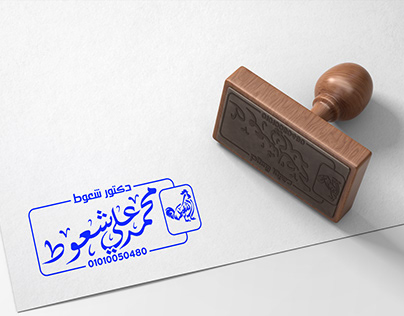 دكتور شعوط
محمد علي شعوط
01010050480